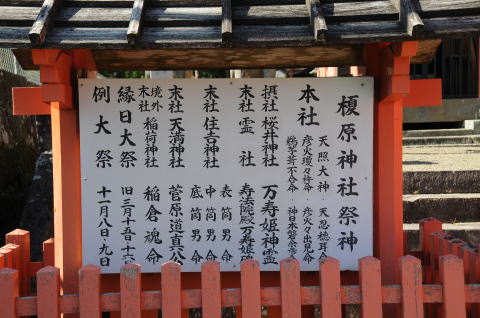 榎原神社祭神
本社 天照大神 天忍穂耳命
彦火瓊々杵命 彦火々出見命
鵜茅葺不合命 神日本磐余彦
摂社 桜井神社 万寿姫神霊
末社 霊社 寿法院殿万寿姫
末社 住吉神社 表筒男命
中筒男命
底筒男命
末社 天満神社 菅原道真公
境外末社 稲荷神社 稲倉魂命
縁日大祭 旧三月
例大祭 十一月八日九日